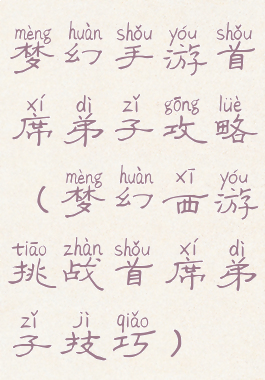 mèng huàn shǒu yóu shǒu
梦幻手游首
xí dì zǐ gōng lüè
席弟子攻略
mèng huàn xī yóu
（梦幻西游
tiāo zhàn shǒu xí dì
挑战首席弟
zǐ jì qiǎo
子技巧）